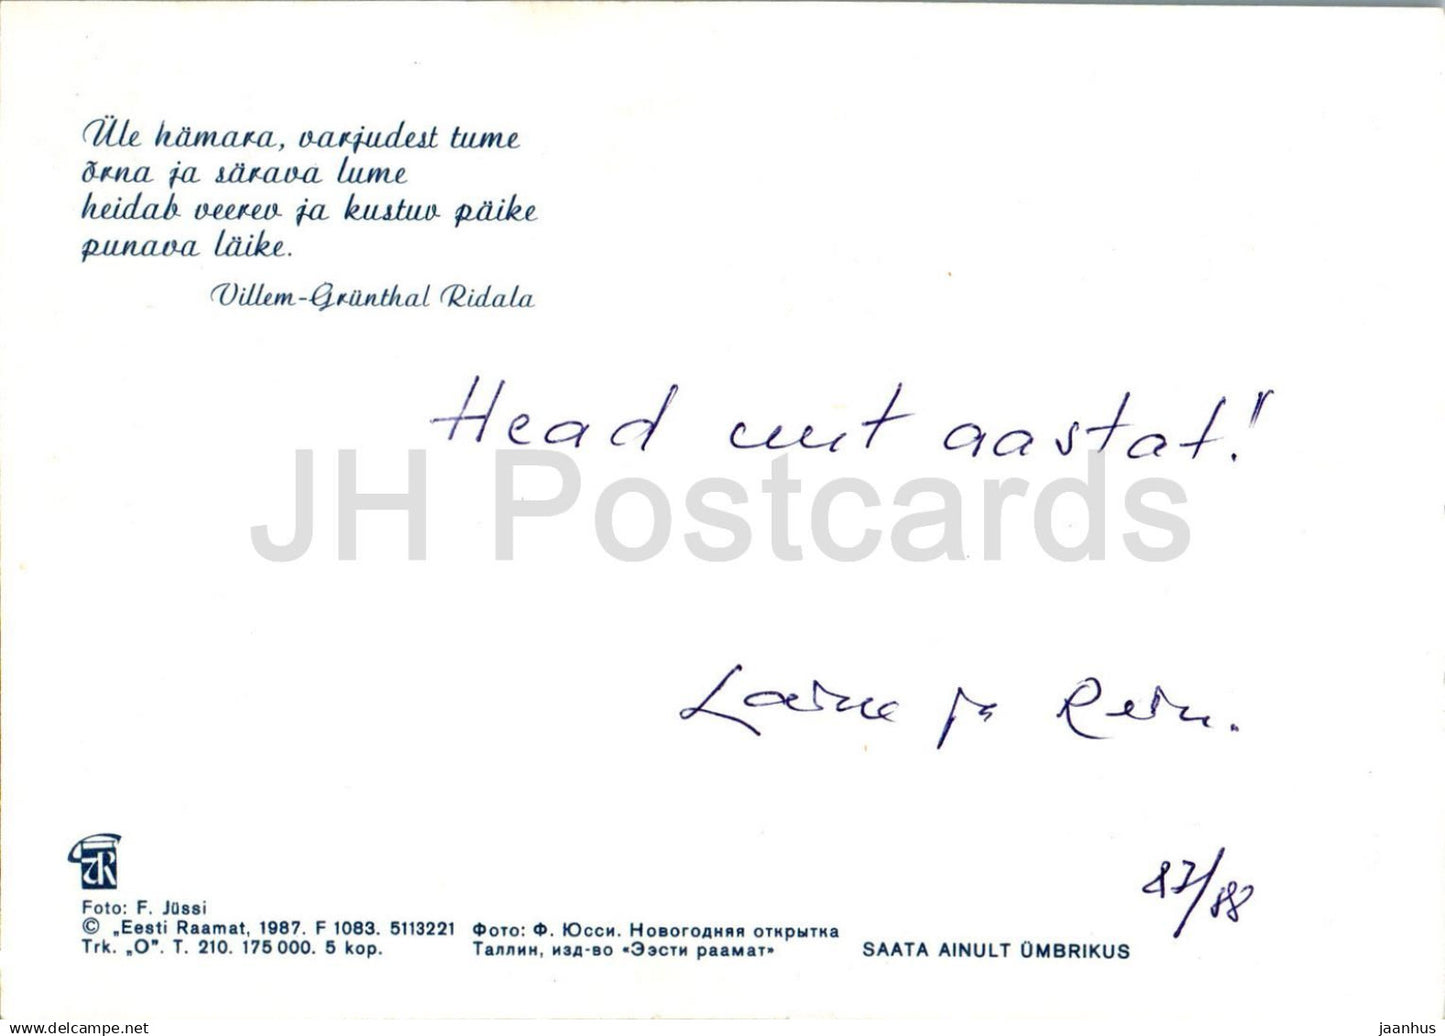 Üle hämara, varjudest tume
õrna ja särava lume
heidab veerev ja kustuv päike
punava läike.
Villem-Grünthal Ridala
Head uut aastat!
JH Postcards
Laine ja Rein.
87/88
Foto: F. Jüssi
© „Eesti Raamat, 1987. F 1083. 5113221
Trk. „O". T. 210. 175 000. 5 kop.
Фото: Ф. Юсси. Новогодняя открытка
Таллин, изд-во «Ээсти раамат»
SAATA AINULT ÜMBRIKUS
jh-postcards.myshopify.com
jaanhus